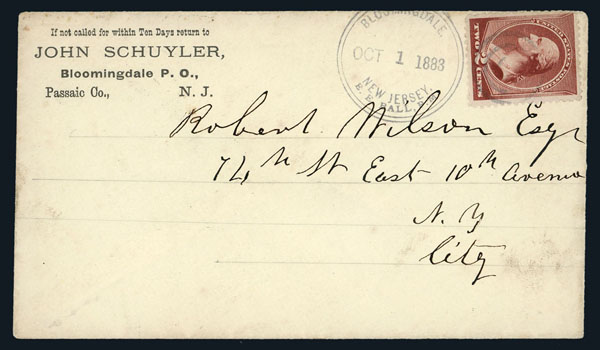 If not called for within Ten Days return to
JOHN SCHUYLER,
Bloomingdale P. O.,
Passaic Co., N. J.
BLOOMINGDALE,
OCT 1 1883
NEW JERSEY.
UNITED STATES POSTAGE
TWO CENTS
Robert Wilson Esqr
74th St East 10th Avenue
N. Y
City